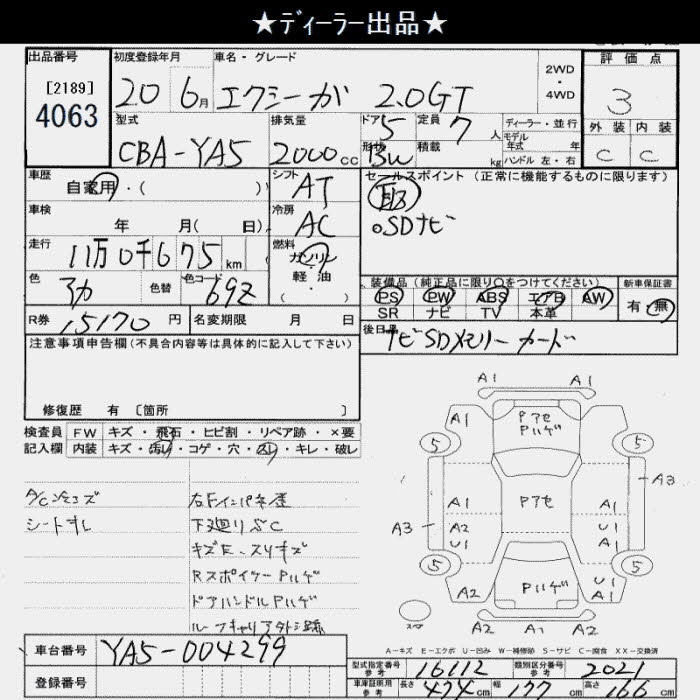 ★ディーラー出品★
出品番号
[2189]
4063
初度登録年月
20 6月
車名・グレード
エクシーガ 2.0GT
2WD
・
4WD
評価点
3
外装 内装
C C
型式
CBA-YA5
排気量
2000cc
ドア 5
形状 BW
定員 7人
積載 kg
ディーラー・並行
モデル年式 年
ハンドル 左・右
車歴
自家用・( )
シフト
AT
セールスポイント(正常に機能するものに限ります)
取
○SDナビ
車検
年 月( 日)
冷房
AC
走行
11万0千675km
燃料
ガソリン
軽油
( ・ )
色
色替
色コード
69Z
装備品(純正品に限り○をつけてください)
PS PW ABS エアB AW
SR ナビ TV 本革
新車保証書
有・無
R券 15170円
名変期限 月 日
後日品
ナビSDメモリーカード
注意事項申告欄(不具合内容等は具体的に記入して下さい)
修復歴 有 〔箇所 〕
検査員記入欄
FW キズ・飛石・ヒビ割・リペア跡・×要
内装 キズ・汚レ・コゲ・穴・スレ・キレ・破レ
シートスレ
右Fインパネ歪
下廻りブC
キズE、スリキズ
RスポイラーPハゲ
ドアハンドルPハゲ
ルーフキャリア外シ跡
A1 A1
A1 Pアセ Pハゲ A1
5 5
A3
A1 Pアセ U1 A1
A3 A2 U1 U1 A1
5 5
A2 Pハゲ U1 A2
A2 A1 A2
スマ
A-キズ E-エクボ U-凹み W-補修跡 S-サビ C-腐食 XX-交換済
車台番号 YA5-004299
登録番号
型式指定番号 参考 16112
類別区分番号 参考 2021
車庫証明用 参考 長さ 474cm 幅 177cm 高さ 166cm